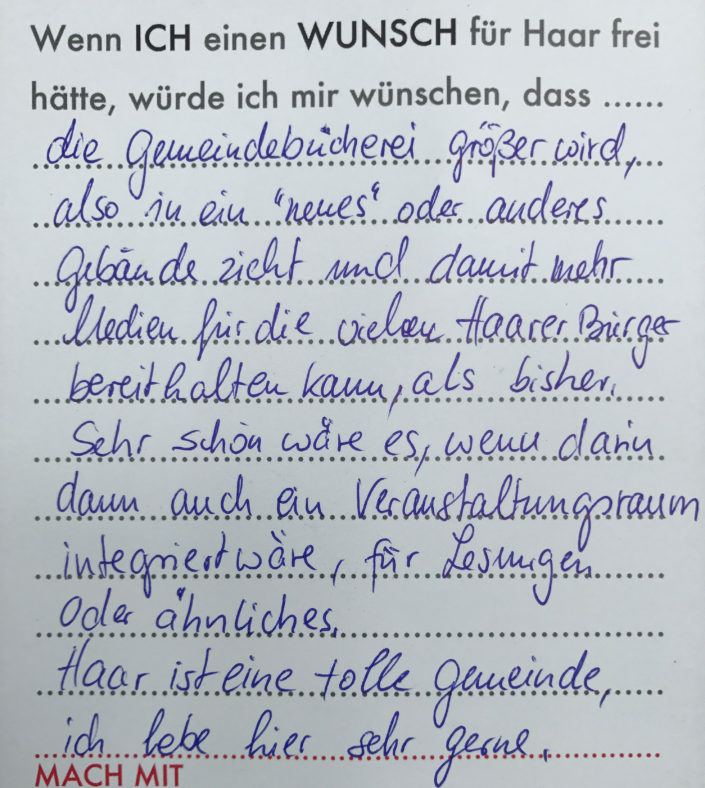 Wenn ICH einen WUNSCH für Haar frei
hätte, würde ich mir wünschen, dass ......
die Gemeindebücherei größer wird,
also in ein "neues" oder anderes
Gebäude zieht und damit mehr
Medien für die vielen Haarer Bürger
bereithalten kann, als bisher.
Sehr schön wäre es, wenn darin
dann auch ein Veranstaltungsraum
integriert wäre, für Lesungen
oder ähnliches.
Haar ist eine tolle Gemeinde,
ich lebe hier sehr gerne.
MACH MIT